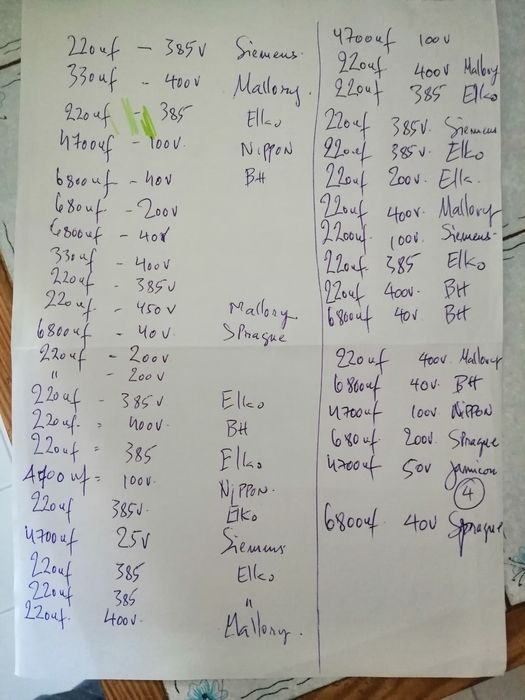 220uf - 385v Siemens.
330uf - 400v Mallory.
220uf - 385 Elko
4700uf - 100v. Nippon
6800uf - 40v BH
680uf - 200v
6800uf - 40v
330uf - 400v
220uf - 385v
220uf - 450v Mallory
6800uf - 40v. Sprague
220uf - 200v
" - 200v
220uf - 385v Elko
220uf. = 400v. BH
220uf = 385 Elko
4700uf = 100v. Nippon.
220uf 385v. Elko
4700uf 25v Siemens
220uf 385 Elko
220uf 385 "
220uf. 400v. Mallory.
4700uf 100v
220uf 400v Mallory
220uf 385 Elko
220uf 385v. Siemens
220uf 385v. Elko
220uf 200v. Elk.
220uf 400v. Mallory
2200uf. 100v. Siemens.
220uf 385 Elko
220uf 400v. BH
6800uf 40v. BH
220uf 400v. Mallory
6800uf 40v. BH
4700uf 100v Nippon
680uf. 200v. Sprague
4700uf 50v Jamicon
4
6800uf. 40v Sprague